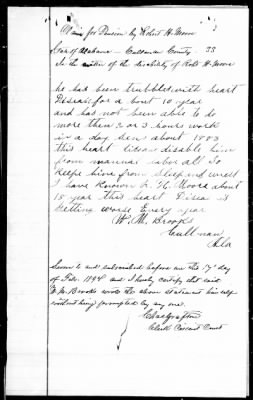 Claim for Pension by Robert H. Moore
State of Alabama - Cullman County - SS
In the matter of the disability of Robt H Moore
he had been trubbled with heart
Diseas for a bout 10 year
and had not been able to do
more then 2 or 3 hours work
in a day sens about 1883
this heart disablé him
from manual labor all so
keeps him from sleep and wrest
I have known R. H. Moore about
15 year this heart Diseas is
getting worse Every year
W. M. Brooks
Cullman
Ala
Sworn to and subscribed before me this 17" day
of Feb. 1894 and I hereby certify that said
W. M. Brooks wrote the above statement himself
without being prompted by any one.
Clerk Circuit Court